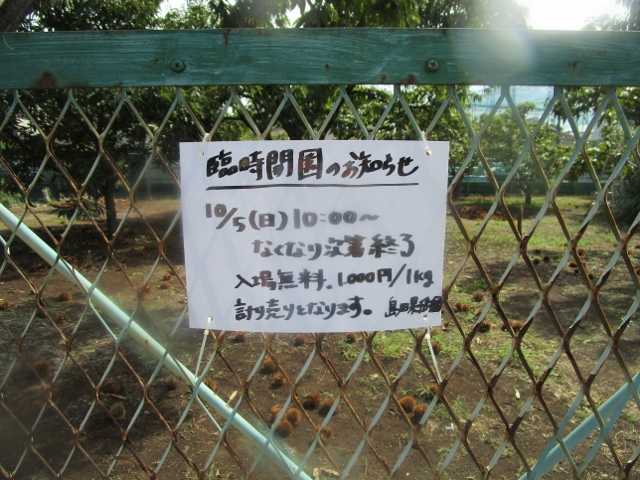 臨時開園のお知らせ
10/5(日)10:00～
なくなり次第終了
入場無料。1.000円/1kg
計り売りとなります。